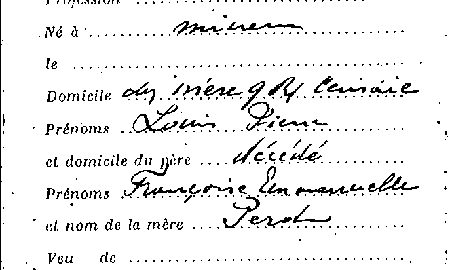 Profession
Né à mineur
le
Domicile chez sa mère 9 R Cerisaie
Prénoms Louis Pierre
et domicile du père décédé
Prénoms Françoise Emmanuelle
et nom de la mère
Veu de